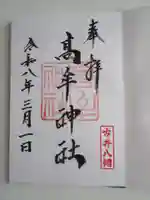 奉拝
高牟神社
令和八年三月一日
古井八幡